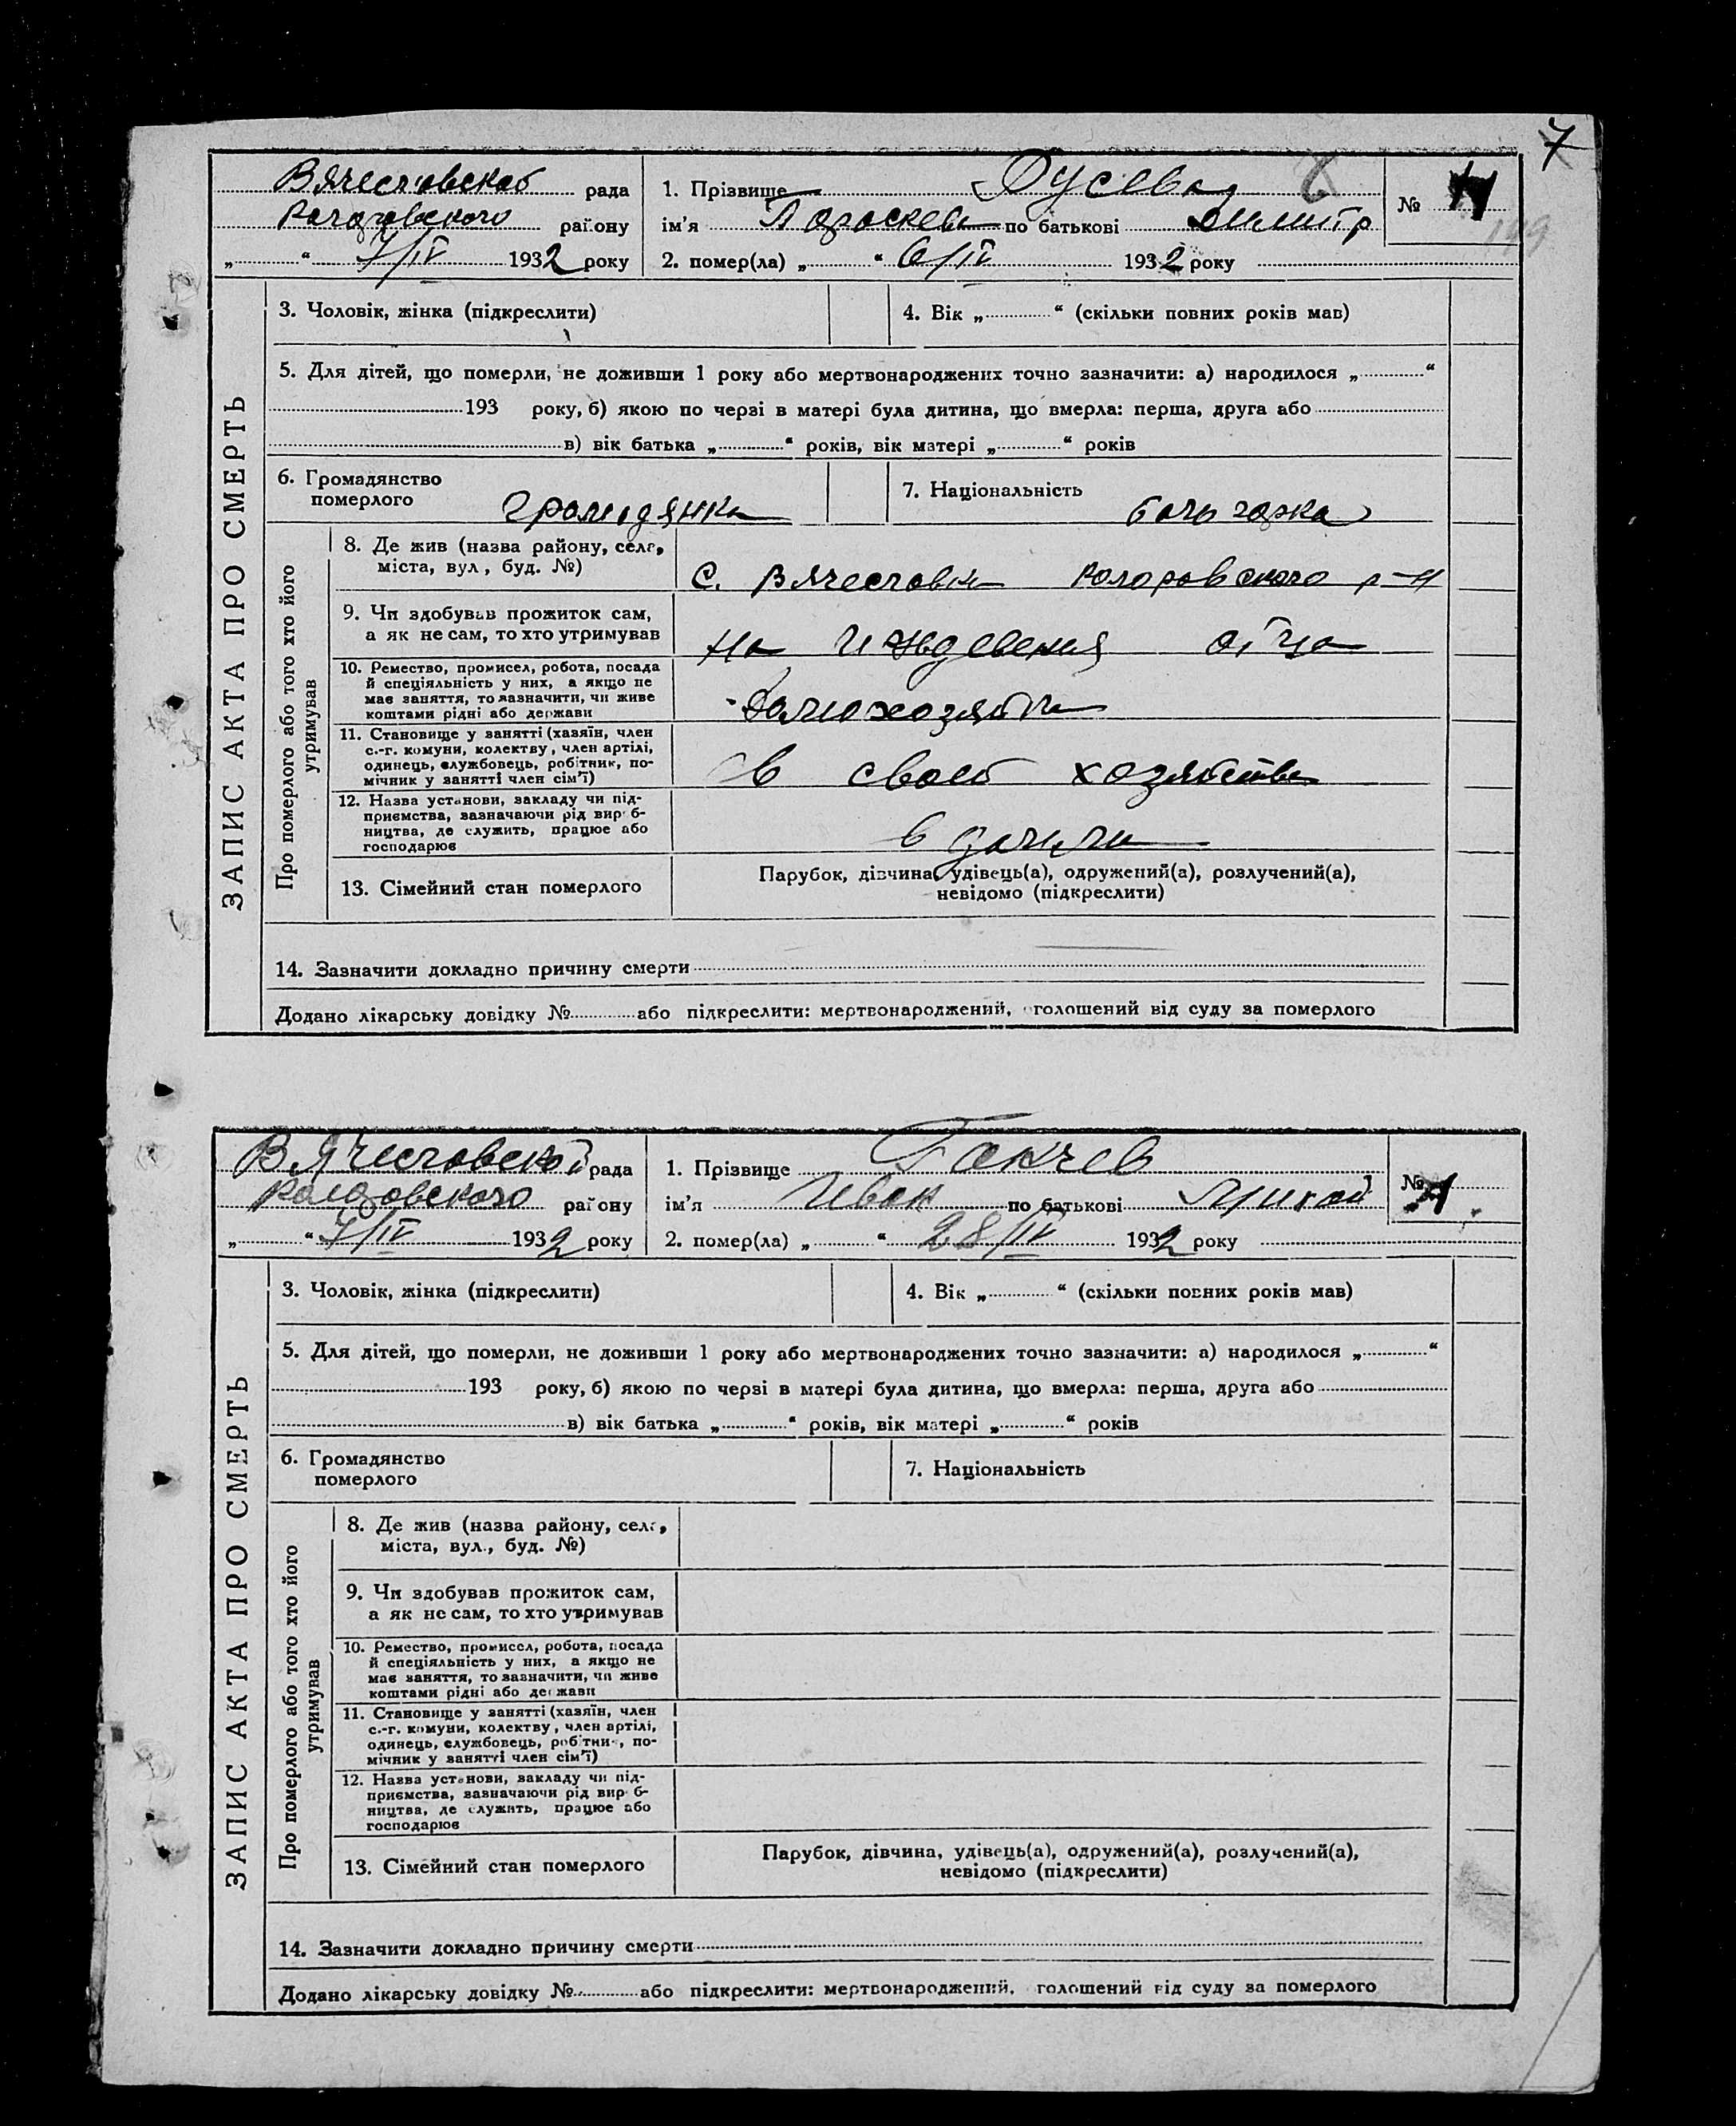 7
Вячеславской рада
Коларовского району
„ “ 7/IV 1932 року
1. Прізвище Дусева
ім'я Параскева по батькові Димитр
2. помер(ла) „ “ 6/IV 1932 року
№
ЗАПИС АКТА ПРО СМЕРТЬ
3. Чоловік, жінка (підкреслити)
4. Вік „ “ (скільки повних років мав)
5. Для дітей, що померли, не доживши 1 року або мертвонароджених точно зазначити: а) народилося „ “
193 року, б) якою по черзі в матері була дитина, що вмерла: перша, друга або
в) вік батька „ “ років, вік матері „ “ років
6. Громадянство
померлого громадянка
7. Національність болгарка
Про померлого або того хто його
утримував
8. Де жив (назва району, села,
міста, вул., буд. №)
с. Вячеславка Коларовского р-н
9. Чи здобував прожиток сам,
а як не сам, то хто утримував
на иждевения отца
10. Ремество, промисел, робота, посада
й спеціяльність у них, а якщо не
має заняття, то зазначити, чи живе
коштами рідні або держави
домохозяйка
11. Становище у занятті (хазяїн, член
с.-г. комуни, колективу, член артілі,
одинець, службовець, робітник, по-
мічник у занятті член сім'ї)
в своей хозяйстве
12. Назва установи, закладу чи під-
приємства, зазначаючи рід вироб-
ництва, де служить, працює або
господарює
в
13. Сімейний стан померлого
Парубок, дівчина, удівець(а), одружений(а), розлучений(а),
невідомо (підкреслити)
14. Зазначити докладно причину смерти
Додано лікарську довідку № або підкреслити: мертвонароджений, оголошений від суду за померлого
Вячеславской рада
Коларовского району
„ “ 7/IV 1932 року
1. Прізвище Гакчев
ім'я Иван по батькові
2. помер(ла) „ “ 28/IV 1932 року
№
ЗАПИС АКТА ПРО СМЕРТЬ
3. Чоловік, жінка (підкреслити)
4. Вік „ “ (скільки повних років мав)
5. Для дітей, що померли, не доживши 1 року або мертвонароджених точно зазначити: а) народилося „ “
193 року, б) якою по черзі в матері була дитина, що вмерла: перша, друга або
в) вік батька „ “ років, вік матері „ “ років
6. Громадянство
померлого
7. Національність
Про померлого або того хто його
утримував
8. Де жив (назва району, села,
міста, вул., буд. №)
9. Чи здобував прожиток сам,
а як не сам, то хто утримував
10. Ремество, промисел, робота, посада
й спеціяльність у них, а якщо не
має заняття, то зазначити, чи живе
коштами рідні або держави
11. Становище у занятті (хазяїн, член
с.-г. комуни, колективу, член артілі,
одинець, службовець, робітник, по-
мічник у занятті член сім'ї)
12. Назва установи, закладу чи під-
приємства, зазначаючи рід вироб-
ництва, де служить, працює або
господарює
13. Сімейний стан померлого
Парубок, дівчина, удівець(а), одружений(а), розлучений(а),
невідомо (підкреслити)
14. Зазначити докладно причину смерти
Додано лікарську довідку № або підкреслити: мертвонароджений, оголошений від суду за померлого